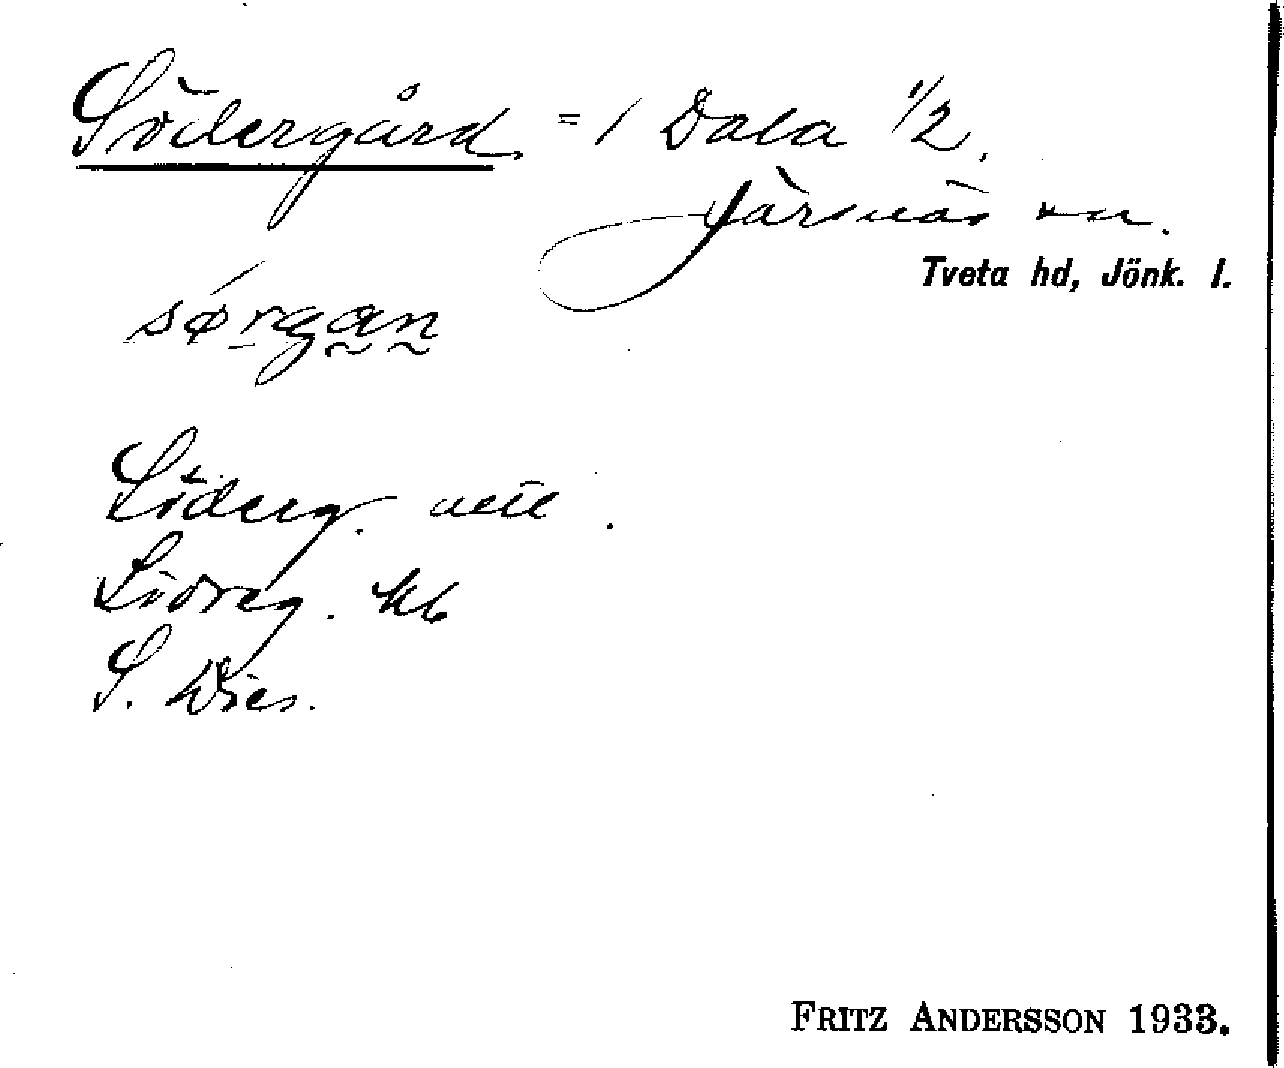 Södergård = 1 Dala 1/2.
Järsnäs sn.
Tveta hd, Jönk. l.
sørgan
Söderg.
Södreg. kb
S.
FRITZ ANDERSSON 1933.